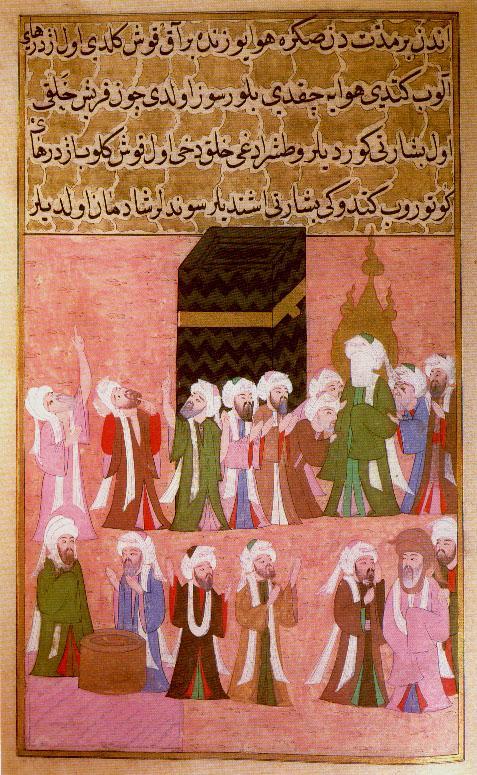 اندن بر مدت دن صكره هوا يوزندن براق قوش كلدی اول ازدرهای
آلوب كتدی هوايه چقدی بلورسز اولدی چون قريش خلقی
اول بشارتی كورديلر و طشرا رغی خلق دخی اول قوش كلوب ازدرهای
كوتوروب كتدوكی بشارتی اشتديلر سوندلر شادمان اولديلر